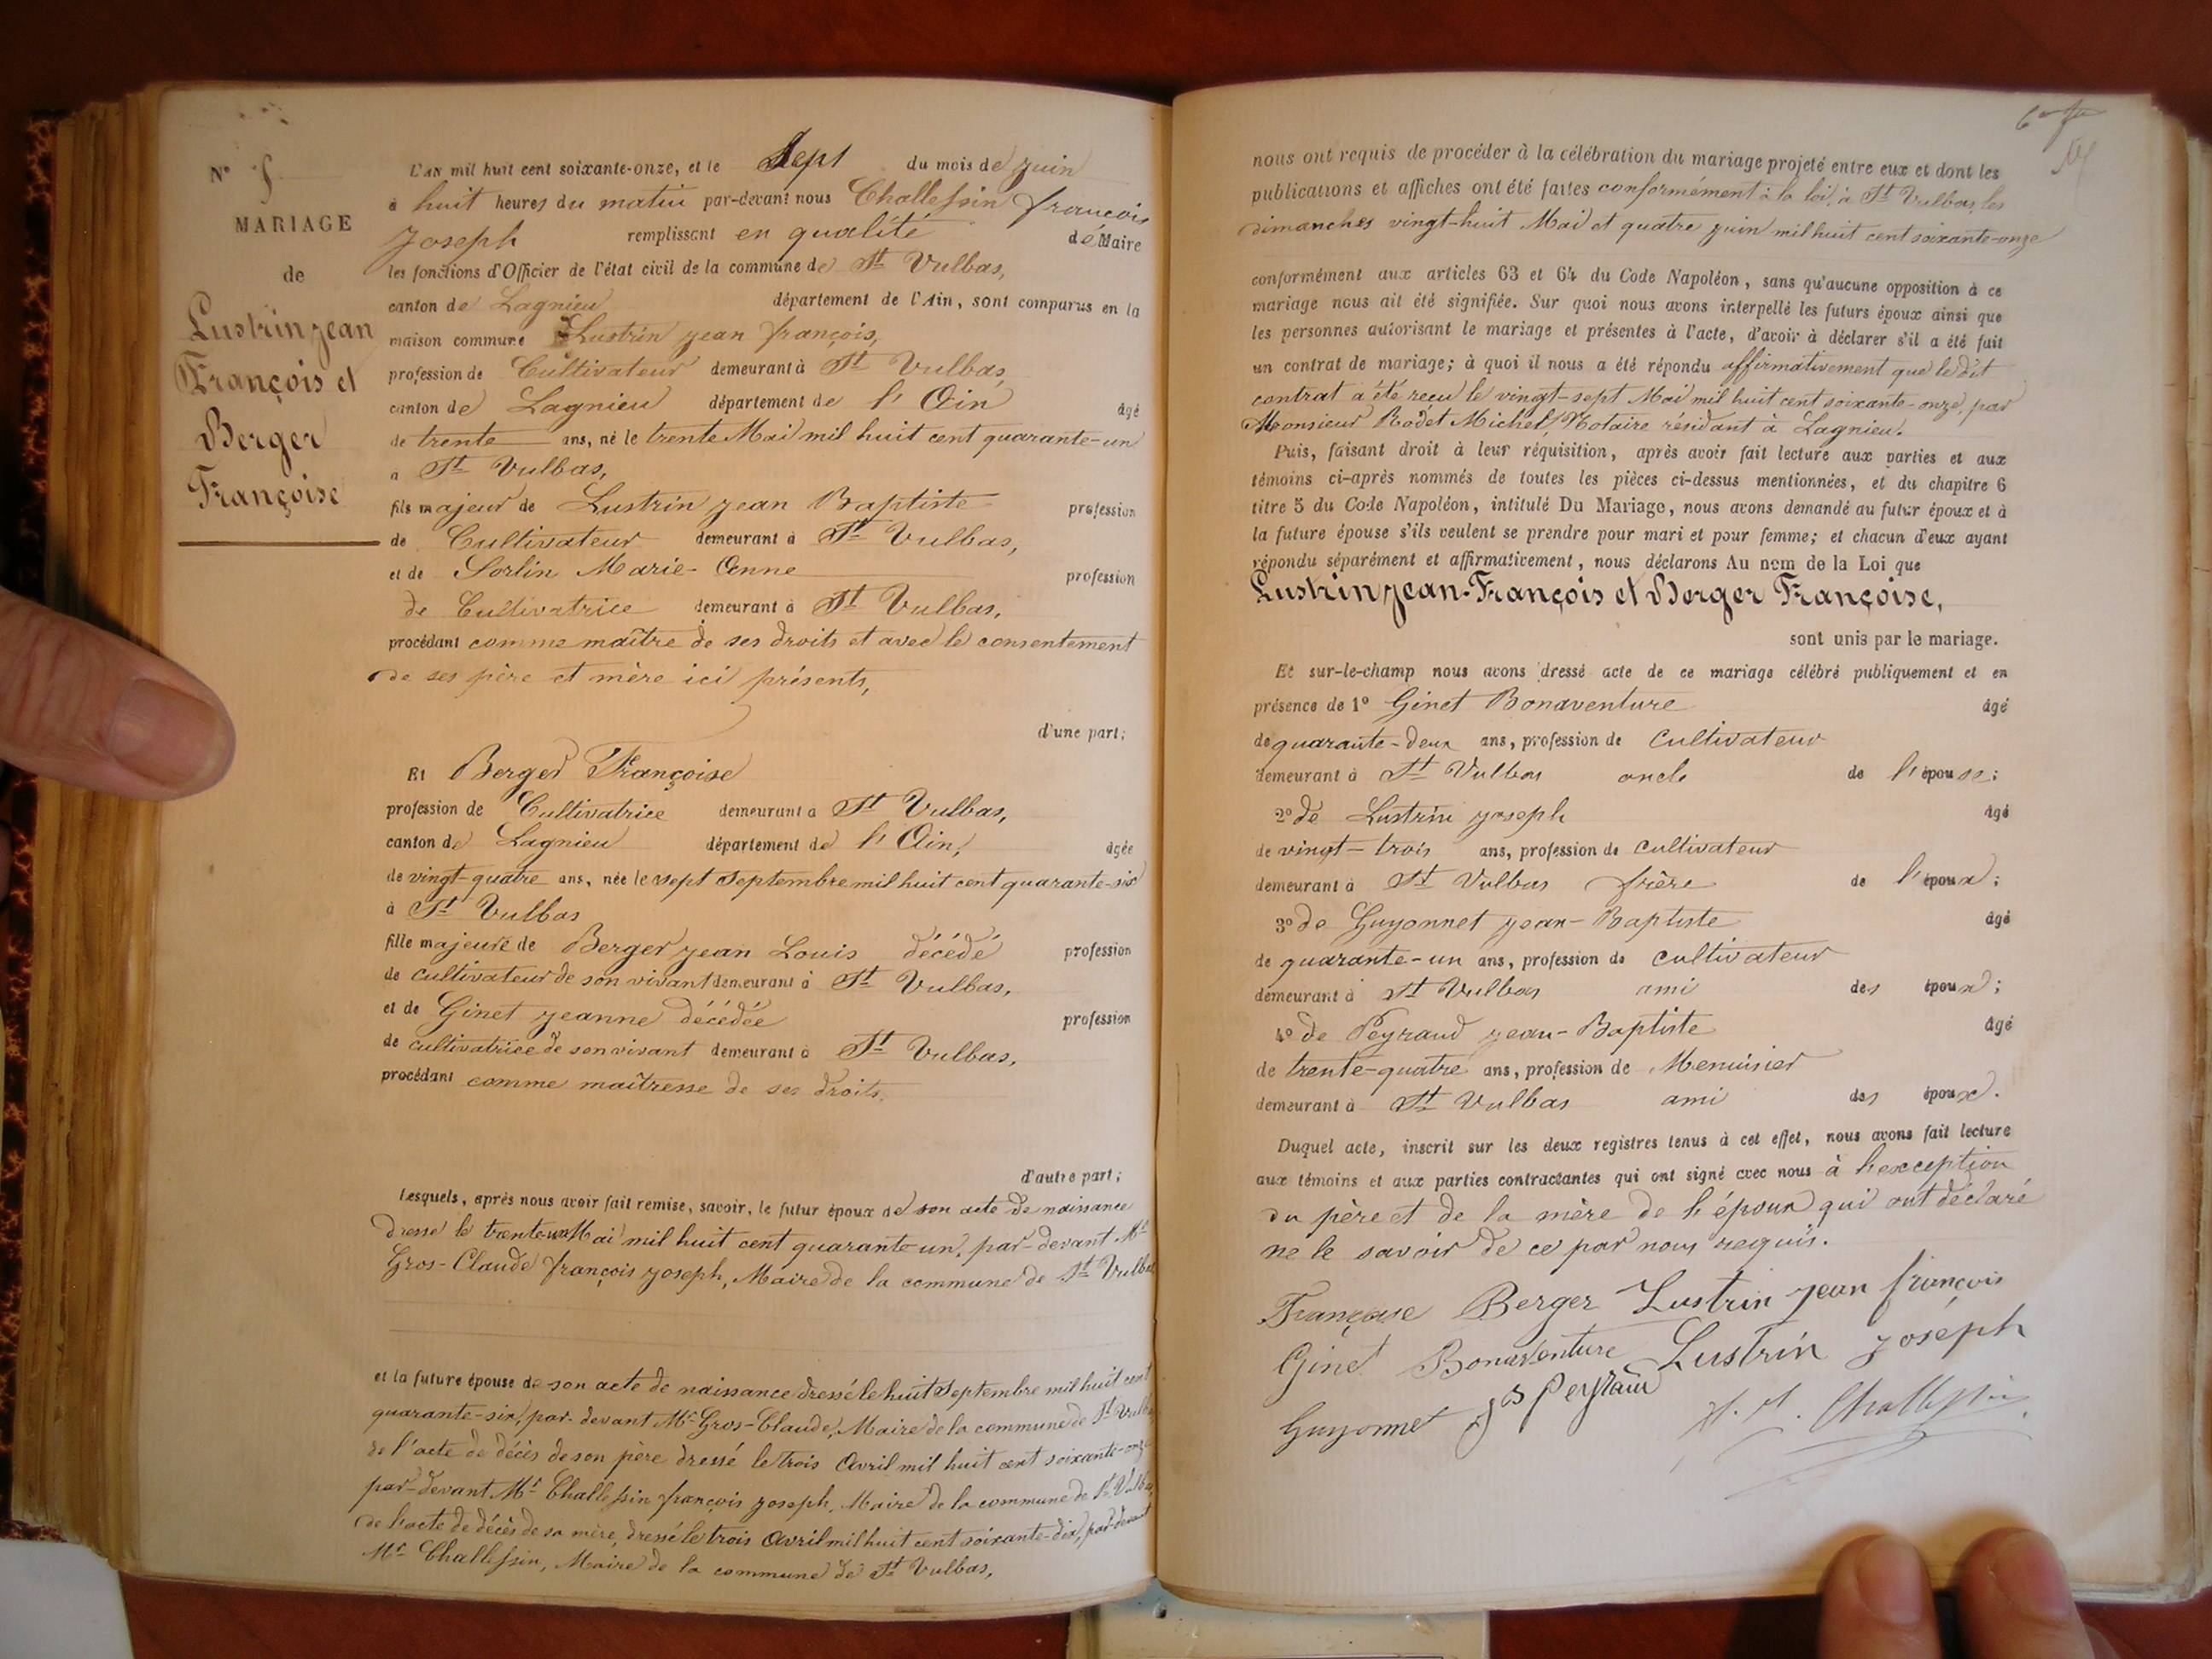 N°
MARIAGE
de
Lustrin jean
François et
Berger
Françoise
L'AN mil huit cent soixante-onze, et le Sept du mois de juin
à huit heures du matin par-devant nous Challessin françois
Joseph remplissant en qualité de Maire
les fonctions d'Officier de l'état civil de la commune de St Vulbas,
canton de Lagnieu département de l'Ain, sont comparus en la
maison commune Lustrin jean françois,
profession de Cultivateur demeurant à St Vulbas,
canton de Lagnieu département de l'Ain âgé
de trente ans, né le trente Mai mil huit cent quarante-un
à St Vulbas,
fils majeur de Lustrin jean Baptiste profession
de Cultivateur demeurant à St Vulbas,
et de Sorlin Marie-Anne profession
de Cultivatrice demeurant à St Vulbas,
procédant comme maître de ses droits et avec le consentement
de ses père et mère ici présents,
d'une part;
Et Berger Françoise
profession de Cultivatrice demeurant à St Vulbas,
canton de Lagnieu département de l'Ain, âgée
de vingt-quatre ans, née le sept Septembre mil huit cent quarante-six
à St Vulbas
fille majeure de Berger jean Louis décédé profession
de cultivateur de son vivant demeurant à St Vulbas,
et de Ginet jeanne décédée profession
de cultivatrice de son vivant demeurant à St Vulbas,
procédant comme maîtresse de ses droits.
d'autre part;
Lesquels, après nous avoir fait remise, savoir, le futur époux de son acte de naissance
dressé le trente-un Mai mil huit cent quarante-un, par-devant Mr
Gros-Claude françois joseph, Maire de la commune de St Vulbas
et la future épouse de son acte de naissance dressé le huit Septembre mil huit cent
quarante-six, par-devant Mr Gros-Claude, Maire de la commune de St Vulbas
de l'acte de décès de son père dressé le trois Avril mil huit cent soixante-onze
par-devant Mr Challessin françois joseph, Maire de la commune de St Vulbas,
de l'acte de décès de sa mère, dressé le trois Avril mil huit cent soixante-dix, par-devant
Mr Challessin, Maire de la commune de St Vulbas,
nous ont requis de procéder à la célébration du mariage projeté entre eux et dont les
publications et affiches ont été faites conformément à la loi, à St Vulbas, les
dimanches vingt-huit Mai et quatre juin mil huit cent soixante-onze
conformément aux articles 63 et 64 du Code Napoléon, sans qu'aucune opposition à ce
mariage nous ait été signifiée. Sur quoi nous avons interpellé les futurs époux ainsi que
les personnes autorisant le mariage et présentes à l'acte, d'avoir à déclarer s'il a été fait
un contrat de mariage; à quoi il nous a été répondu affirmativement que le dit
contrat a été reçu le vingt-sept Mai mil huit cent soixante-onze, par
Monsieur Rodet Michel, Notaire résidant à Lagnieu.
Puis, faisant droit à leur réquisition, après avoir fait lecture aux parties et aux
témoins ci-après nommés de toutes les pièces ci-dessus mentionnées, et du chapitre 6
titre 5 du Code Napoléon, intitulé Du Mariage, nous avons demandé au futur époux et à
la future épouse s'ils veulent se prendre pour mari et pour femme; et chacun d'eux ayant
répondu séparément et affirmativement, nous déclarons Au nom de la Loi que
Lustrin jean-François et Berger Françoise,
sont unis par le mariage.
Et sur-le-champ nous avons dressé acte de ce mariage célébré publiquement et en
présence de 1° Ginet Bonaventure âgé
de quarante-deux ans, profession de Cultivateur
demeurant à St Vulbas oncle de l'épouse;
2° de Lustrin joseph âgé
de vingt-trois ans, profession de cultivateur
demeurant à St Vulbas frère de l'époux;
3° de Guyonnet jean-Baptiste âgé
de quarante-un ans, profession de cultivateur
demeurant à St Vulbas ami des époux;
4° de Peyraud jean-Baptiste âgé
de trente-quatre ans, profession de Menuisier
demeurant à St Vulbas ami des époux.
Duquel acte, inscrit sur les deux registres tenus à cet effet, nous avons fait lecture
aux témoins et aux parties contractantes qui ont signé avec nous à l'exception
du père et de la mère de l'époux qui ont déclaré
ne le savoir de ce par nous requis.
Françoise Berger Lustrin jean françois
Ginet Bonaventure Lustrin joseph
Guyonnet Peyraud Challessin